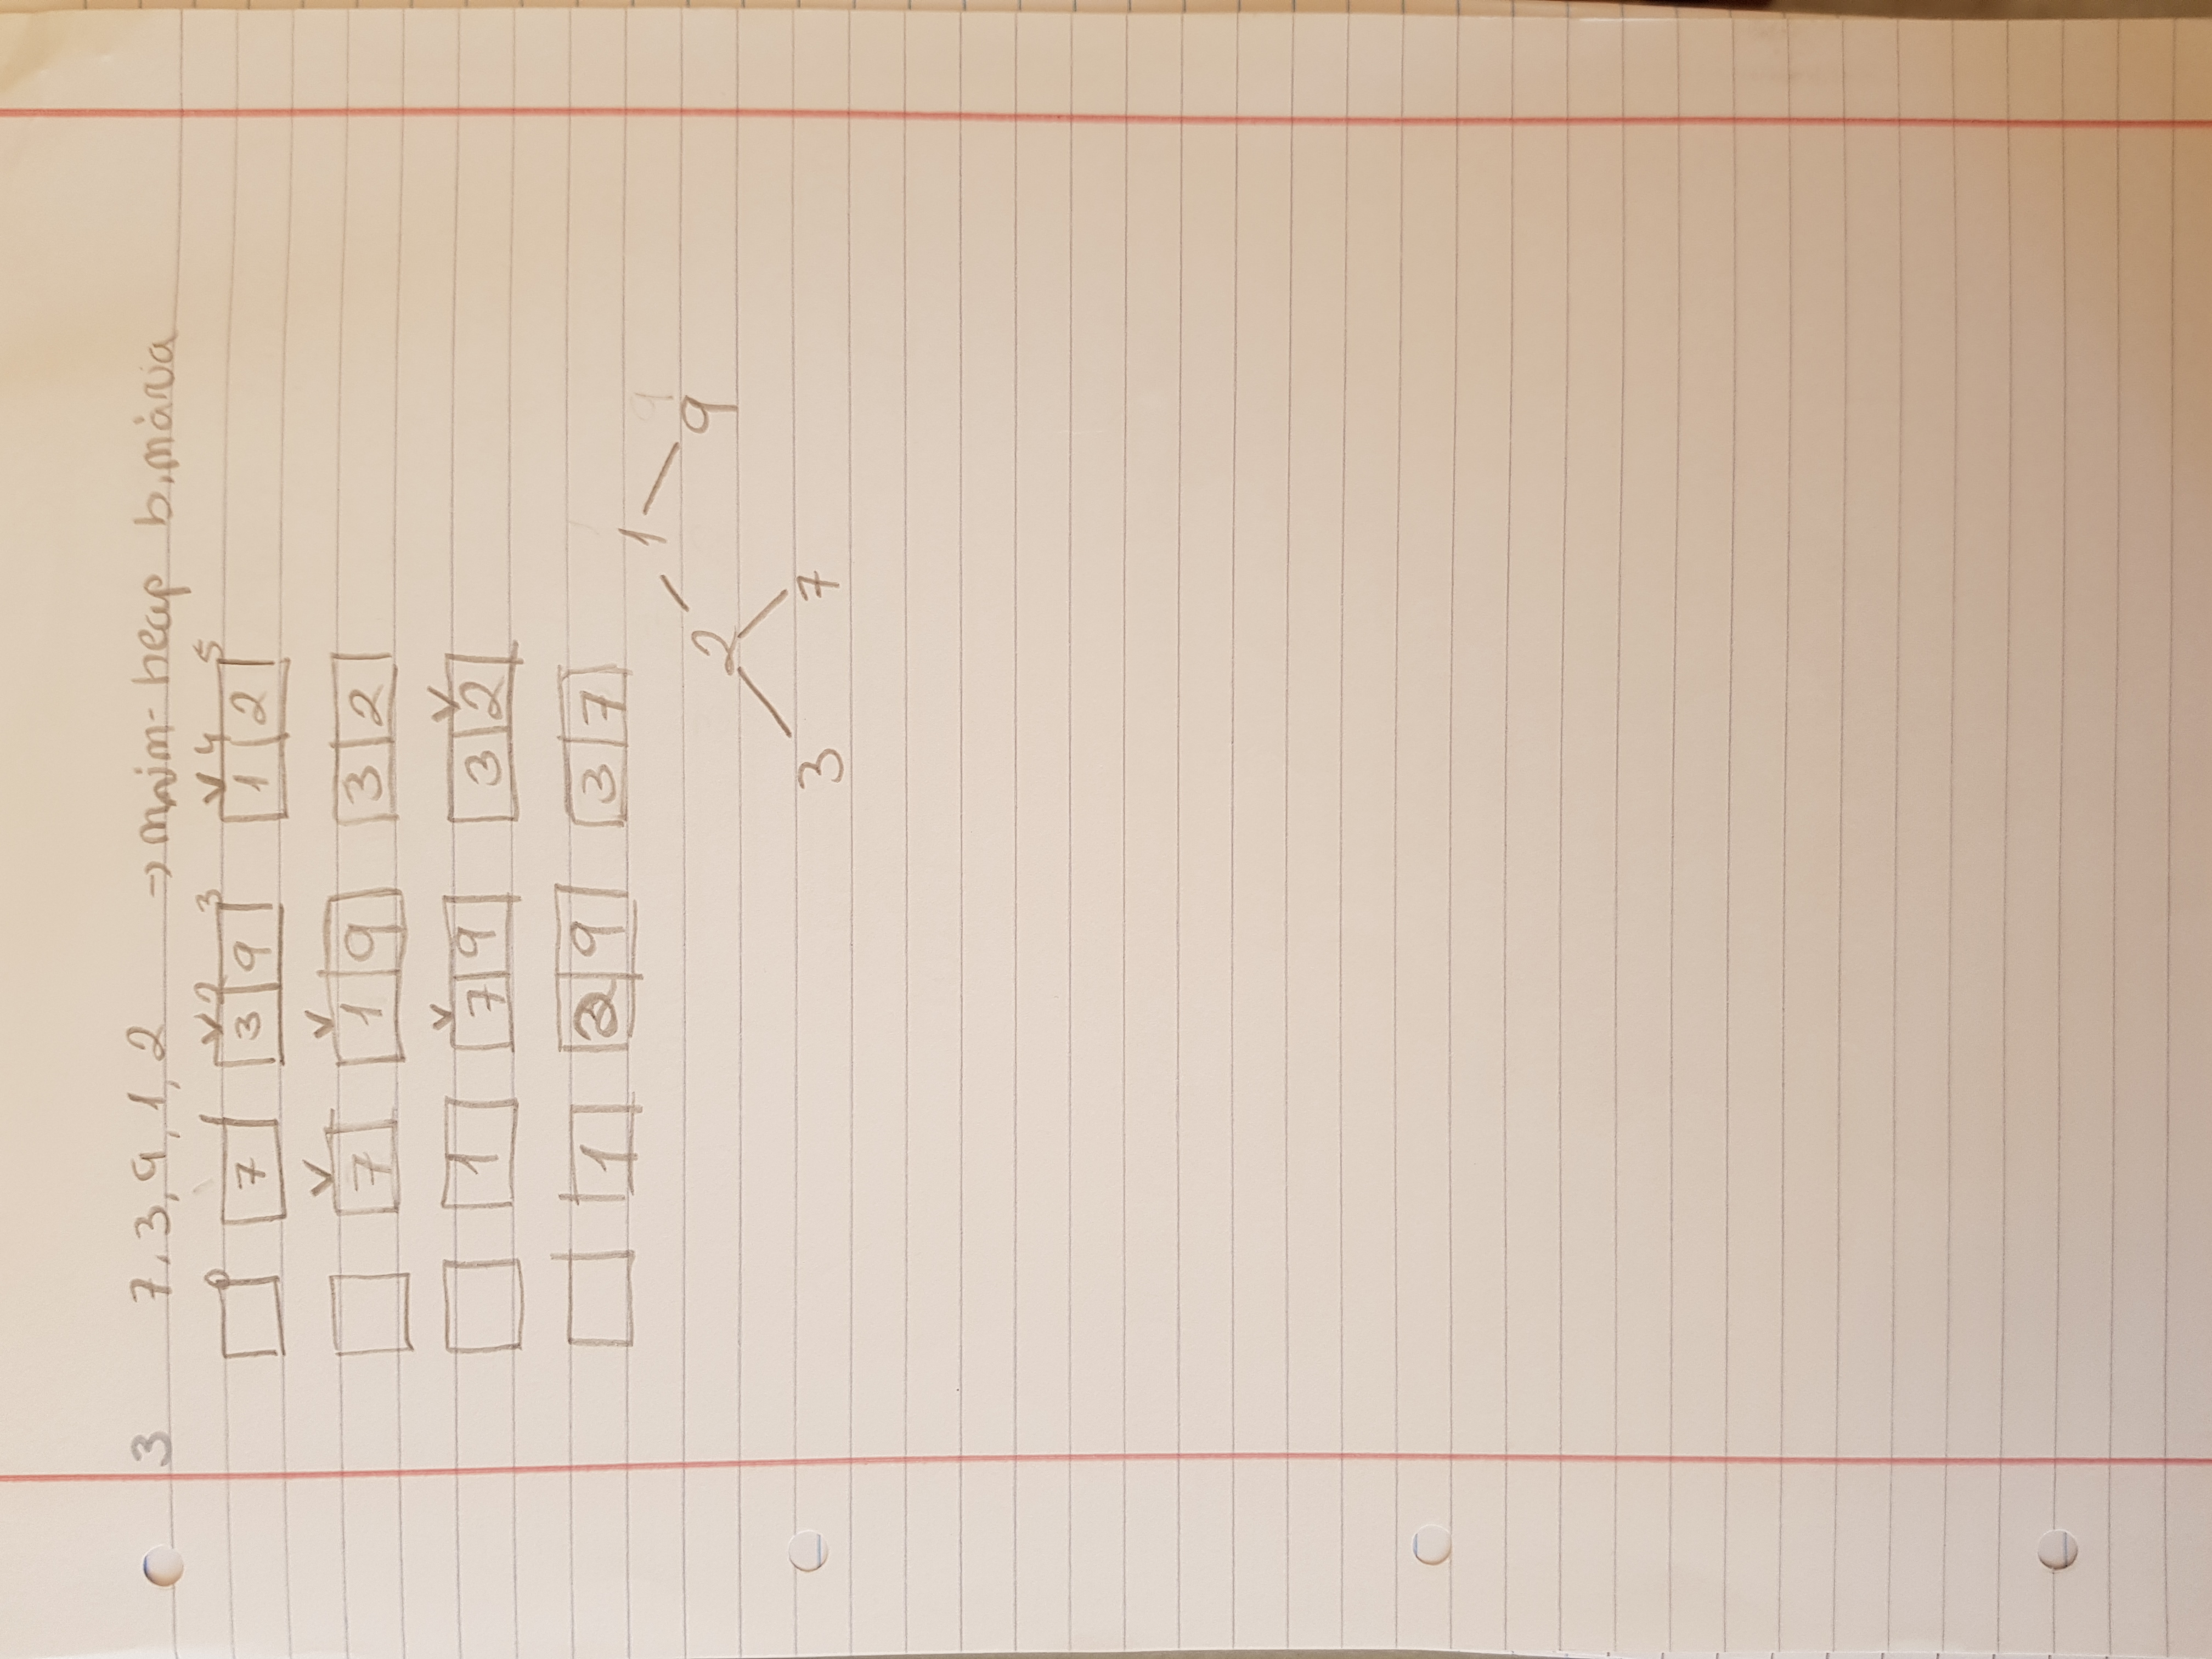 3 7, 3, 9, 1, 2 → min-heap binária
0 1 2 3 4 5
7 3 9 1 2
7 1 9 3 2
1 7 9 3 2
1 2 9 3 7
1 9
2 9
3 7